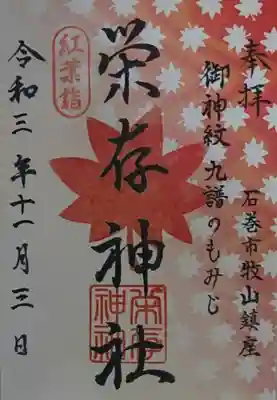 奉拝
石巻市牧山鎮座
御神紋 九譜のもみじ
栄存神社
栄存神社
紅葉詣
令和三年十一月三日